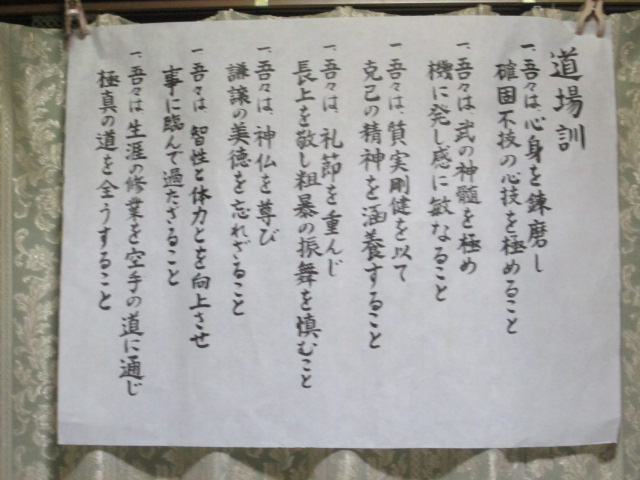 道場訓
一、吾々は、心身を錬磨し
確固不技の心技を極めること
一、吾々は、武の神髄を極め
機に発し感に敏なること
一、吾々は、質実剛健を以て
克己の精神を涵養すること
一、吾々は、礼節を重んじ
長上を敬し粗暴の振舞を慎むこと
一、吾々は、神仏を尊び
謙譲の美徳を忘れざること
一、吾々は、智性と体力とを向上させ
事に臨んで過たざること
一、吾々は、生涯の修業を空手の道に通じ
極真の道を全うすること